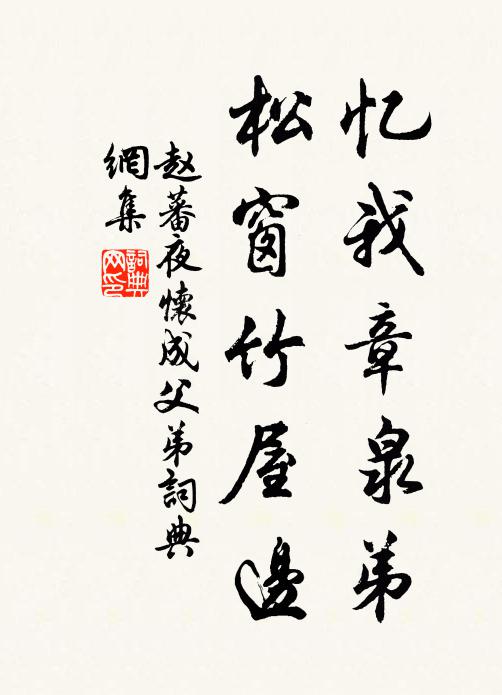 忆我章泉弟
松窗竹屋邊
赵蕃夜懷成父弟詞典
網集
詞典网印